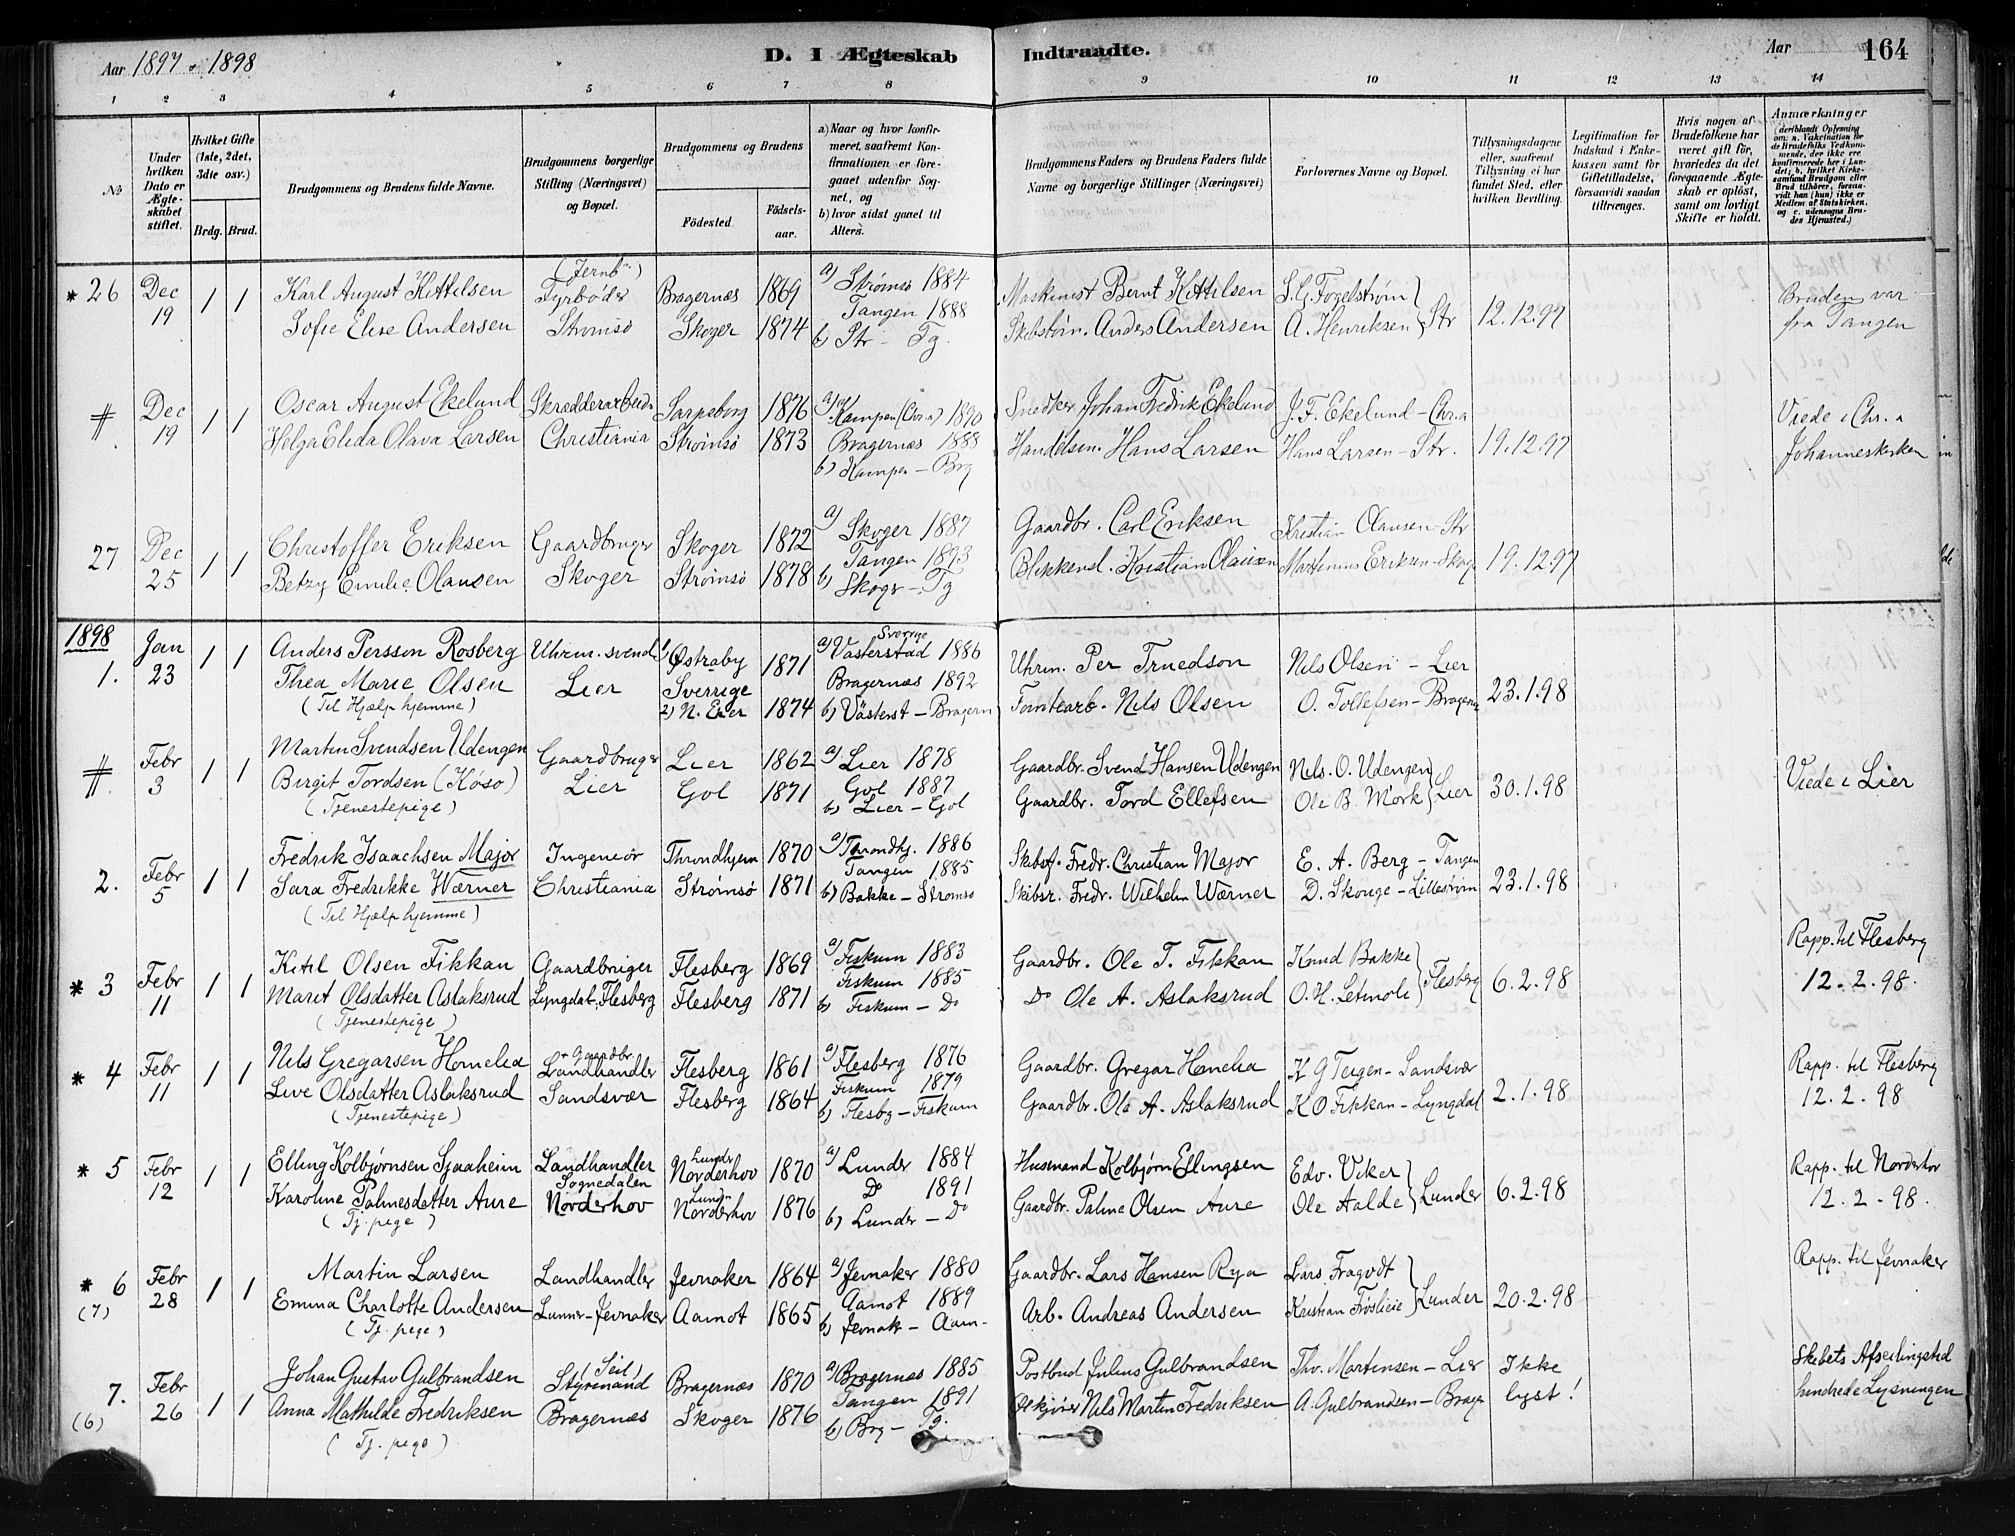 Aar 1897 - 1898
D. I Ægteskab Indtraadte.
Aar
164
1 2 3 4 5 6 7 8 9 10 11 12 13 14
No
Under hvilken Dato er Ægteskabet stiftet.
Hvilket Gifte (1ste, 2det, 3die osv.)
Brdg. Brud.
Brudgommens og Brudens fulde Navne.
Brudgommens borgerlige Stilling (Næringsvei) og Bopæl.
Brudgommens og Brudens
Fødested. Fødselsaar.
a) Naar og hvor konfirmeret, saafremt Konfirmationen er foregaaet udenfor Sognet, og
b) hvor sidst gaaet til Alters.
Brudgommens Faders og Brudens Faders fulde Navne og borgerlige Stillinger (Næringsvei)
Forlovernes Navne og Bopæl.
Tillysningsdagene eller, saafremt Tillysning ei har fundet Sted, efter hvilken Bevilling.
Legitimation for Indskud i Enkekassen samt for Giftetilladelse, forsaavidt saadan tiltrænges.
Hvis nogen af Brudefolkene har været gift før, hvorledes da det foregaaende Ægteskab er opløst, samt om lovligt Skifte er holdt.
Anmærkninger (deriblandt Oplysning om: a. Vakcination for de Brudefolks Vedkommende, der ikke ere konfirmerede her i Landet; b. hvilket Kirkesamfund Brudgom eller Brud tilhører, forsaavidt han (hun) ikke er Medlem af Statskirken, og c. udensogns Brudes Hjemsted.)
* 26 Dec 19 1 1 Karl August Kittilsen (Jernb.) Fyrbøder Bragernæs 1869 a) Strømsø 1884 Maskinist Bernt Kittilsen S. G. Fogelstrøm 12.12.97 Bruden var
Sofie Elise Andersen Strømsø Skoger 1874 Tangen 1888 Skibstøm. Anders Andersen A. Henriksen } Str fra Tangen
b) Str - Tg.
# Dec 19 1 1 Oscar August Ekelund Skrædderarbeid. Sarpsborg 1876 a) Kampen (Chr.a) 1890 Snedker Johan Fredrik Ekelund J. F. Ekelund - Chr.a 19.12.97 Viede i Chr.a
Helga Elida Olava Larsen Christiania Strømsø 1873 Bragernæs 1888 Handelsm. Hans Larsen Hans Larsen - Str. Johanneskirken
b) Kampen - Brg
27 Dec 25 1 1 Christoffer Eriksen Gaardbruger Skoger 1872 a) Skoger 1887 Gaardbr. Carl Eriksen Kristian Olausen - Str 19.12.97
Betzy Emilie Olausen Skoger Strømsø 1878 Tangen 1893 Blikkensl. Kristian Olausen Martinius Eriksen - Skog
b) Skogr - Tg
1898
1. Jan 23 1 1 Anders Persson Rosberg Uhrm. svend 1) Østraby 1871 a) Västerstad Sverige 1886 Uhrm. Per Truedson Nils Olsen - Lier 23.1.98
Thea Marie Olsen Lier Sverrige Bragernæs 1892
(Til Hjælp hjemme) 2) N. Eker 1874 b) Västerst - Bragern Tomtearb. Nils Olsen O. Tollefsen - Bragernæs
# Febr 3 1 1 Martin Svendsen Udengen Gaardbruger Lier 1862 a) Lier 1878 Gaardbr. Svend Hansen Udengen Nils. O. Udengen 30.1.98 Viede i Lier
Birgit Tordsen (Køso) Lier Gol 1871 Gol 1887 Gaardbr. Tord Ellefsen Ole B. Mørk } Lier
(Tjenestepige) b) Lier - Gol
2. Febr 5 1 1 Fredrik Isaachsen Major Ingeniør Throndhjem 1870 a) Throndhj. 1886 Skibsf. Fredr. Christian Major E. A. Berg - Tangen 23.1.98
Sara Fredrikke Wærner Christiania Strømsø 1871 Tangen 1885 Skibsr. Fredr. Wilhelm Wærner D. Skouge - Lillestrøm
(Til Hjælp hjemme) b) Bakke - Strømsø
* 3 Febr 11 1 1 Kitil Olsen Fikkan Gaardbruger Flesberg 1869 a) Fiskum 1883 Gaardbr. Ole T. Fikkan Knud Bakke 6.2.98 Rapp. til Flesberg
Marit Olsdatter Aslaksrud Lyngdal, Flesberg Flesberg 1871 Fiskum 1885 Do Ole A. Aslaksrud } Flesberg 12.2.98.
(Tjenestepige) b) Fiskum - Do
* 4 Febr 11 1 1 Nils Gregarsen Hornelia Landhandler + Gaardbr. Flesberg 1861 a) Flesberg 1876 Gaardbr. Gregar Hornelia K G Teigen - Sandsvær 2.1.98 Rapp. til Flesberg
Live Olsdatter Aslaksrud Sandsvær Flesberg 1864 Fiskum 1879 Gaardbr. Ole A. Aslaksrud K O Fikkan - Lyngdal 12.2.98
(Tjenestepige) b) Flesbg - Fiskum
* 5 Febr 12 1 1 Elling Kolbjørnsen Sjaaheim Landhandler Lunder Norderhov 1870 a) Lunder 1884 Husmand Kolbjørn Ellingsen Edv. Viker 6.2.98 Rapp. til Norderhov
Karoline Palmesdatter Aure Sognedalen Norderhov Lunder Norderhov 1876 Do 1891 Gaardbr. Palme Olsen Aure Ole Aalde } Lunder 12.2-98.
(Tj. pige) b) Lunder - Do
* 6 (7) Febr 28 1 1 Martin Larsen Landhandler Jevnaker 1864 a) Jevnaker 1880 Gaardbr. Lars Hansen Rya Lars Fragodt 20.2.98 Rapp. til Jevnaker
Emma Charlotte Andersen Lunner - Jevnaker Aamot 1865 Aamot 1889 Arb. Andreas Andersen Kristian Frøslieie } Lunder
(Tj. pige) b) Jevnak - Aam-
7. (6) Febr 26 1 1 Johan Gustav Gulbrandsen (Seil) Styrmand Bragernæs 1870 a) Bragernæs 1885 Postbud Julius Gulbrandsen Thv. Martinsen - Lier Ikke Skibets Afseilingstid
Anna Mathilde Fredriksen Bragernæs Skoger 1876 Tangen 1891 Nils Martin Fredriksen A. Gulbrandsen - Brager lyst! hindrede Lysningen
(Tj. pige) b) Brg - Tg.